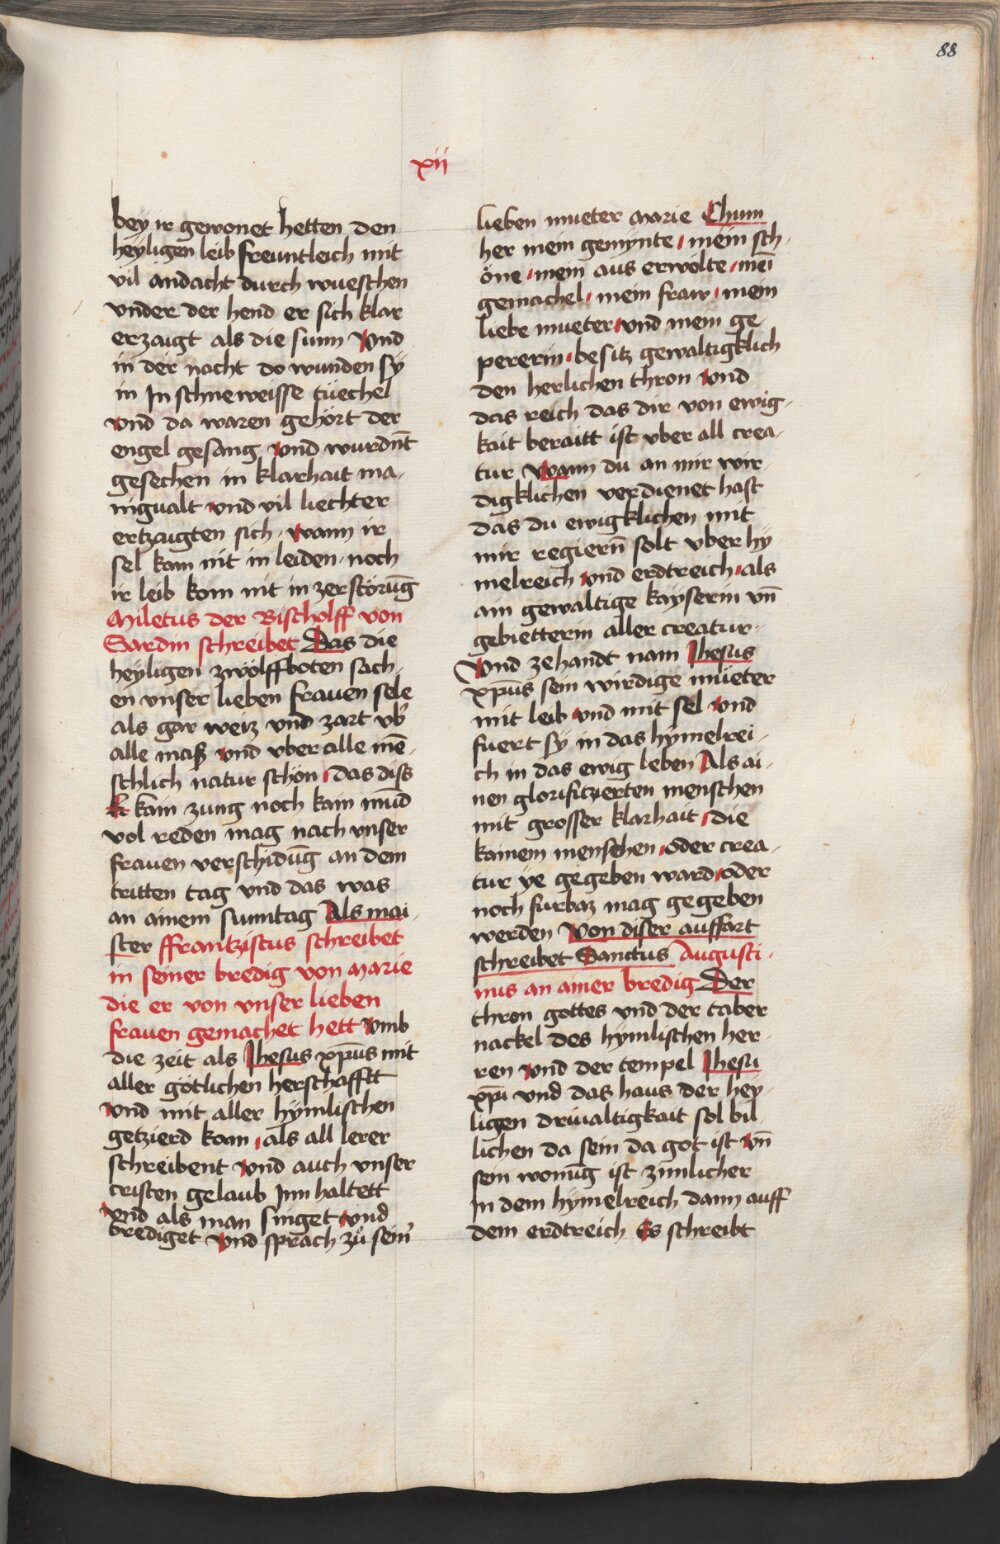 88
xii
bey ir gewonet hetten den
heyligen leib freuntleich mit
vil andacht durch wueschen
vnder der hend er sich klar
erzaigt als die sunn Vnd
in der nacht do wunden sy
in In schneweisse tüechel
vnd da waren gehört der
engel gesang vnd wurdn̄t
gesechen in klarhait ma-
nigualt vnd vil liechter
ertzaigten sich. wann ir
sel kam nit in leiden. noch
ir leib kom nit in zerstörūg
Miletus der Bischolff von
Sardin schreibet Das die
heyligen zwölffboten sach-
en vnser lieben frauen sele
als gar weiz vnd zart vb̾
alle maß vnd vber alle mē-
schlich natur schön. das diss
kain zung noch kain mūd
vol reden mag nach vnser
frauen verschidūg an dem
tritten tag vnd das was
an ainem sunntag Als mai-
ster ffrantziscus schreibet
in seiner bredig von marie
die er von vnser lieben
frauen gemachet hett Vmb
die zeit als Jhesus xp̄us mit
aller götlichen herschafftt
vnd mit aller hÿmlischen
getzierd kam. als all lerer
schreibent vnd auch vnser
cristen gelaub Inn haltett
vnd als man singet vnd
brediget vnd sprach zů sein̾
lieben mueter marie Chum
her mein gemÿnte. mein sch-
öne. mein aus erwölte. mei̅
gemachel. mein fraw. mein
liebe mueter. vnd mein ge-
pererin. besitz gewaltigklich
den herlichen thron vnd
das reich das dir von ewig-
kait beraitt ist vber all crea-
tur Wann du an mir wir-
digklichen verdienet hast
das du ewigklichen mit
mir regiern̄ solt vber hÿ
melreich vnd erdtreich. als
ain gewaltige kayserin vn̄
gebietterin aller creatur.
Vnd zehandt nam Jhesus
xp̄us sein wirdige müeter
mit leib vnd mit sel vnd
fuert sÿ in das hÿmelrei-
ch in das ewig leben Als ai-
nen glorifitzierten menschen
mit grosser klarhait. die
kainem menschen. oder crea-
tur ye gegeben ward. oder
noch furbaz mag gegeben
werden Von diser auffart
schreibet Sanctus Augusti-
nus an ainer bredig Der
thron gottes vnd der taber
nackel des hÿmlischen her-
ren vnd der tempel Jhesu
xp̄i vnd das haus der hey-
ligen driualtigkait sol bil
lichen da sein da got ist vn̄
sein wonūg ist zimlicher
In dem hÿmelreich dann auff
dem erdtreich Es schreibt